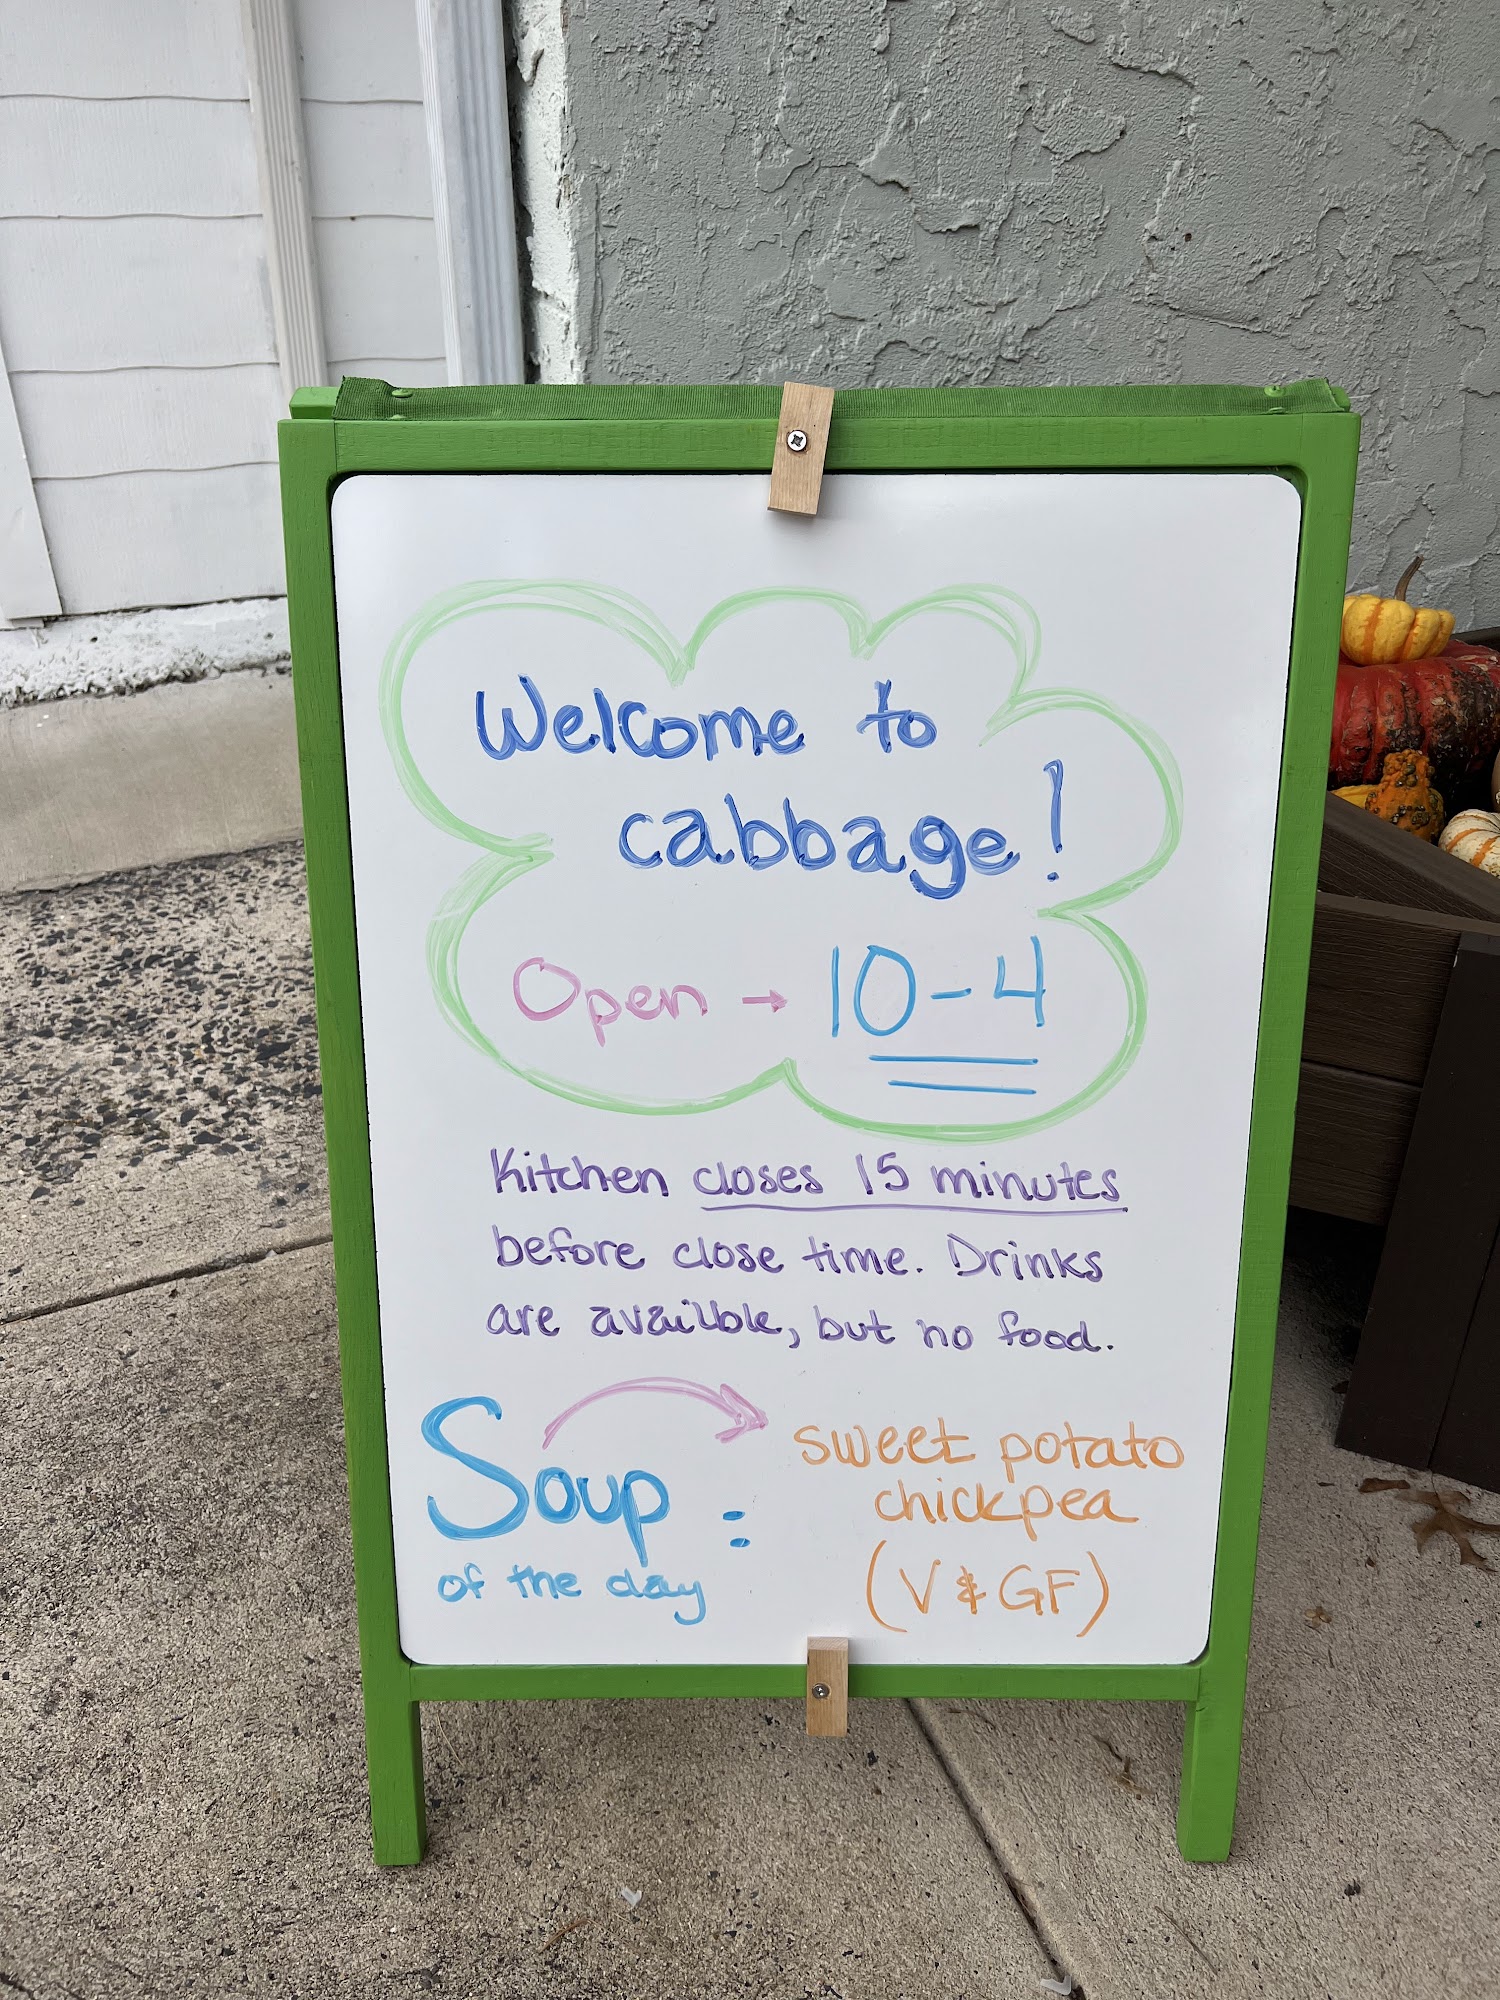 Welcome to
cabbage!
Open → 10-4
Kitchen closes 15 minutes
before close time. Drinks
are availble, but no food.
Soup :
of the day
sweet potato
chickpea
(V & GF)